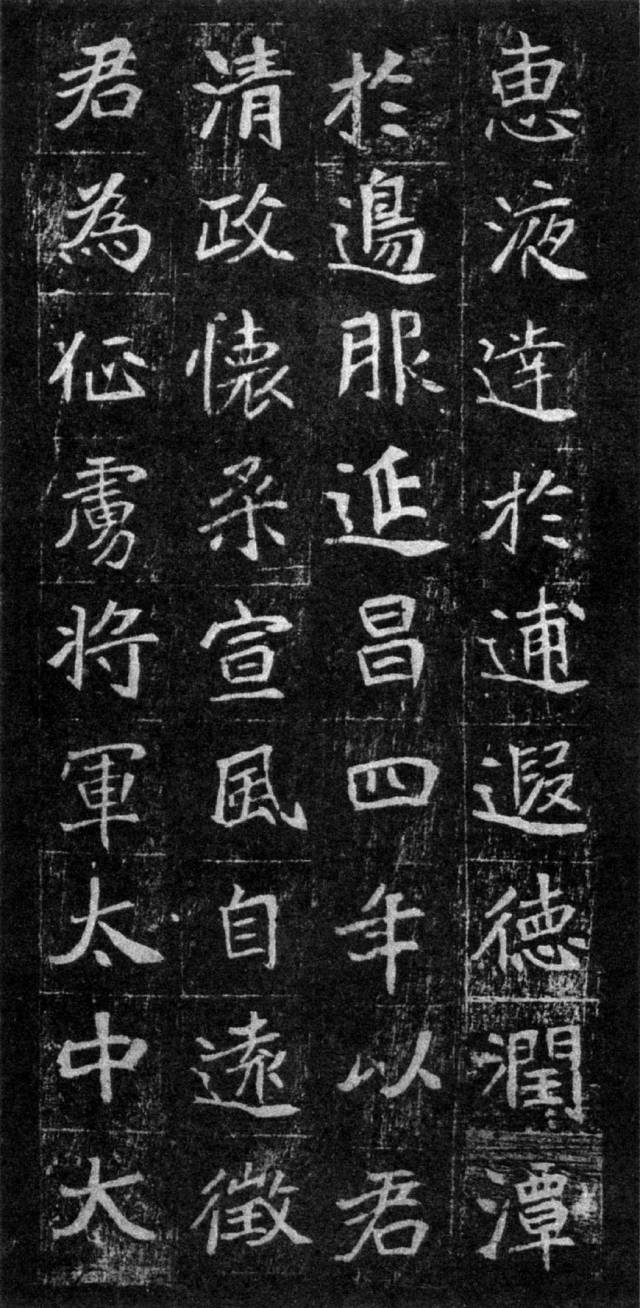 恵液達於逋遐德潤潭
於邊服延昌四年以君
清政懷柔宣風自遠徵
君為征虜將軍太中大